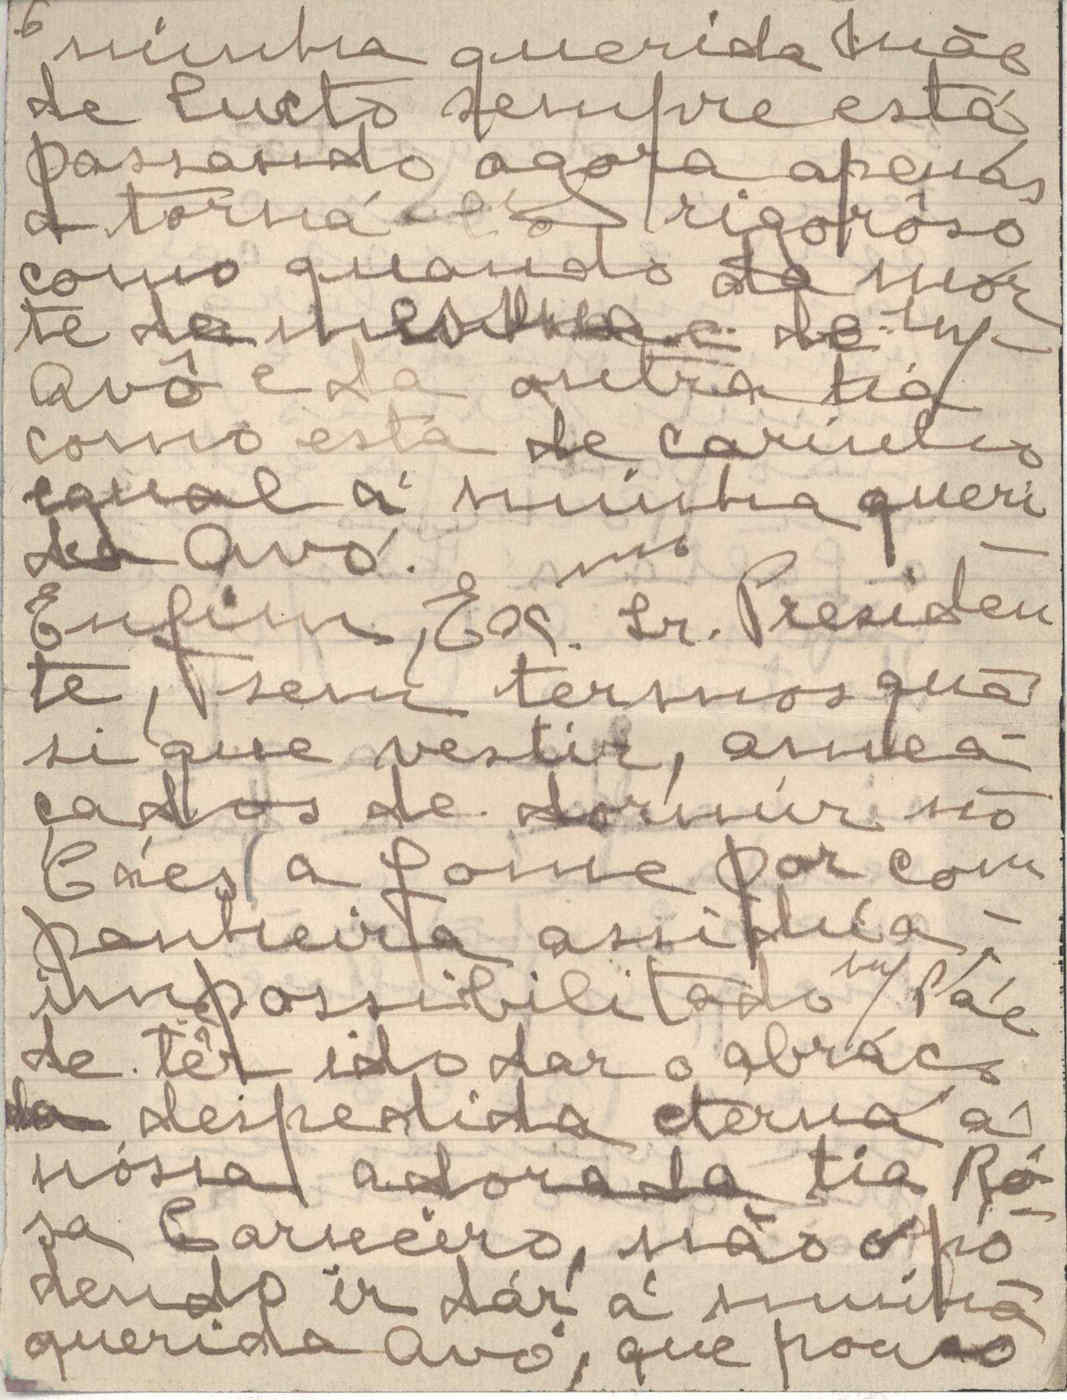 6
minha querida Mãe
de lucto sempre está
passando agora apenás
a torná-lo rigorôso
como quando da mór
te da mesma e de m/
Avô e da outra tia
como está de carinho
egual á minha queri
da Avó.
Enfim, Exᵐᵒ. Sr. Presiden
te, sem termos quá
si que vestir, amea
çados de dormir nô
Cáes, a fome por com
panheira assidúa,
impossibilitado m/ Páe
de têr ido dar o abráço
da despedida eterna á
nóssa adorada tia Ró
sa Carneiro, não o pô
dendo ir dár á minhã
querida Avó, que pouco